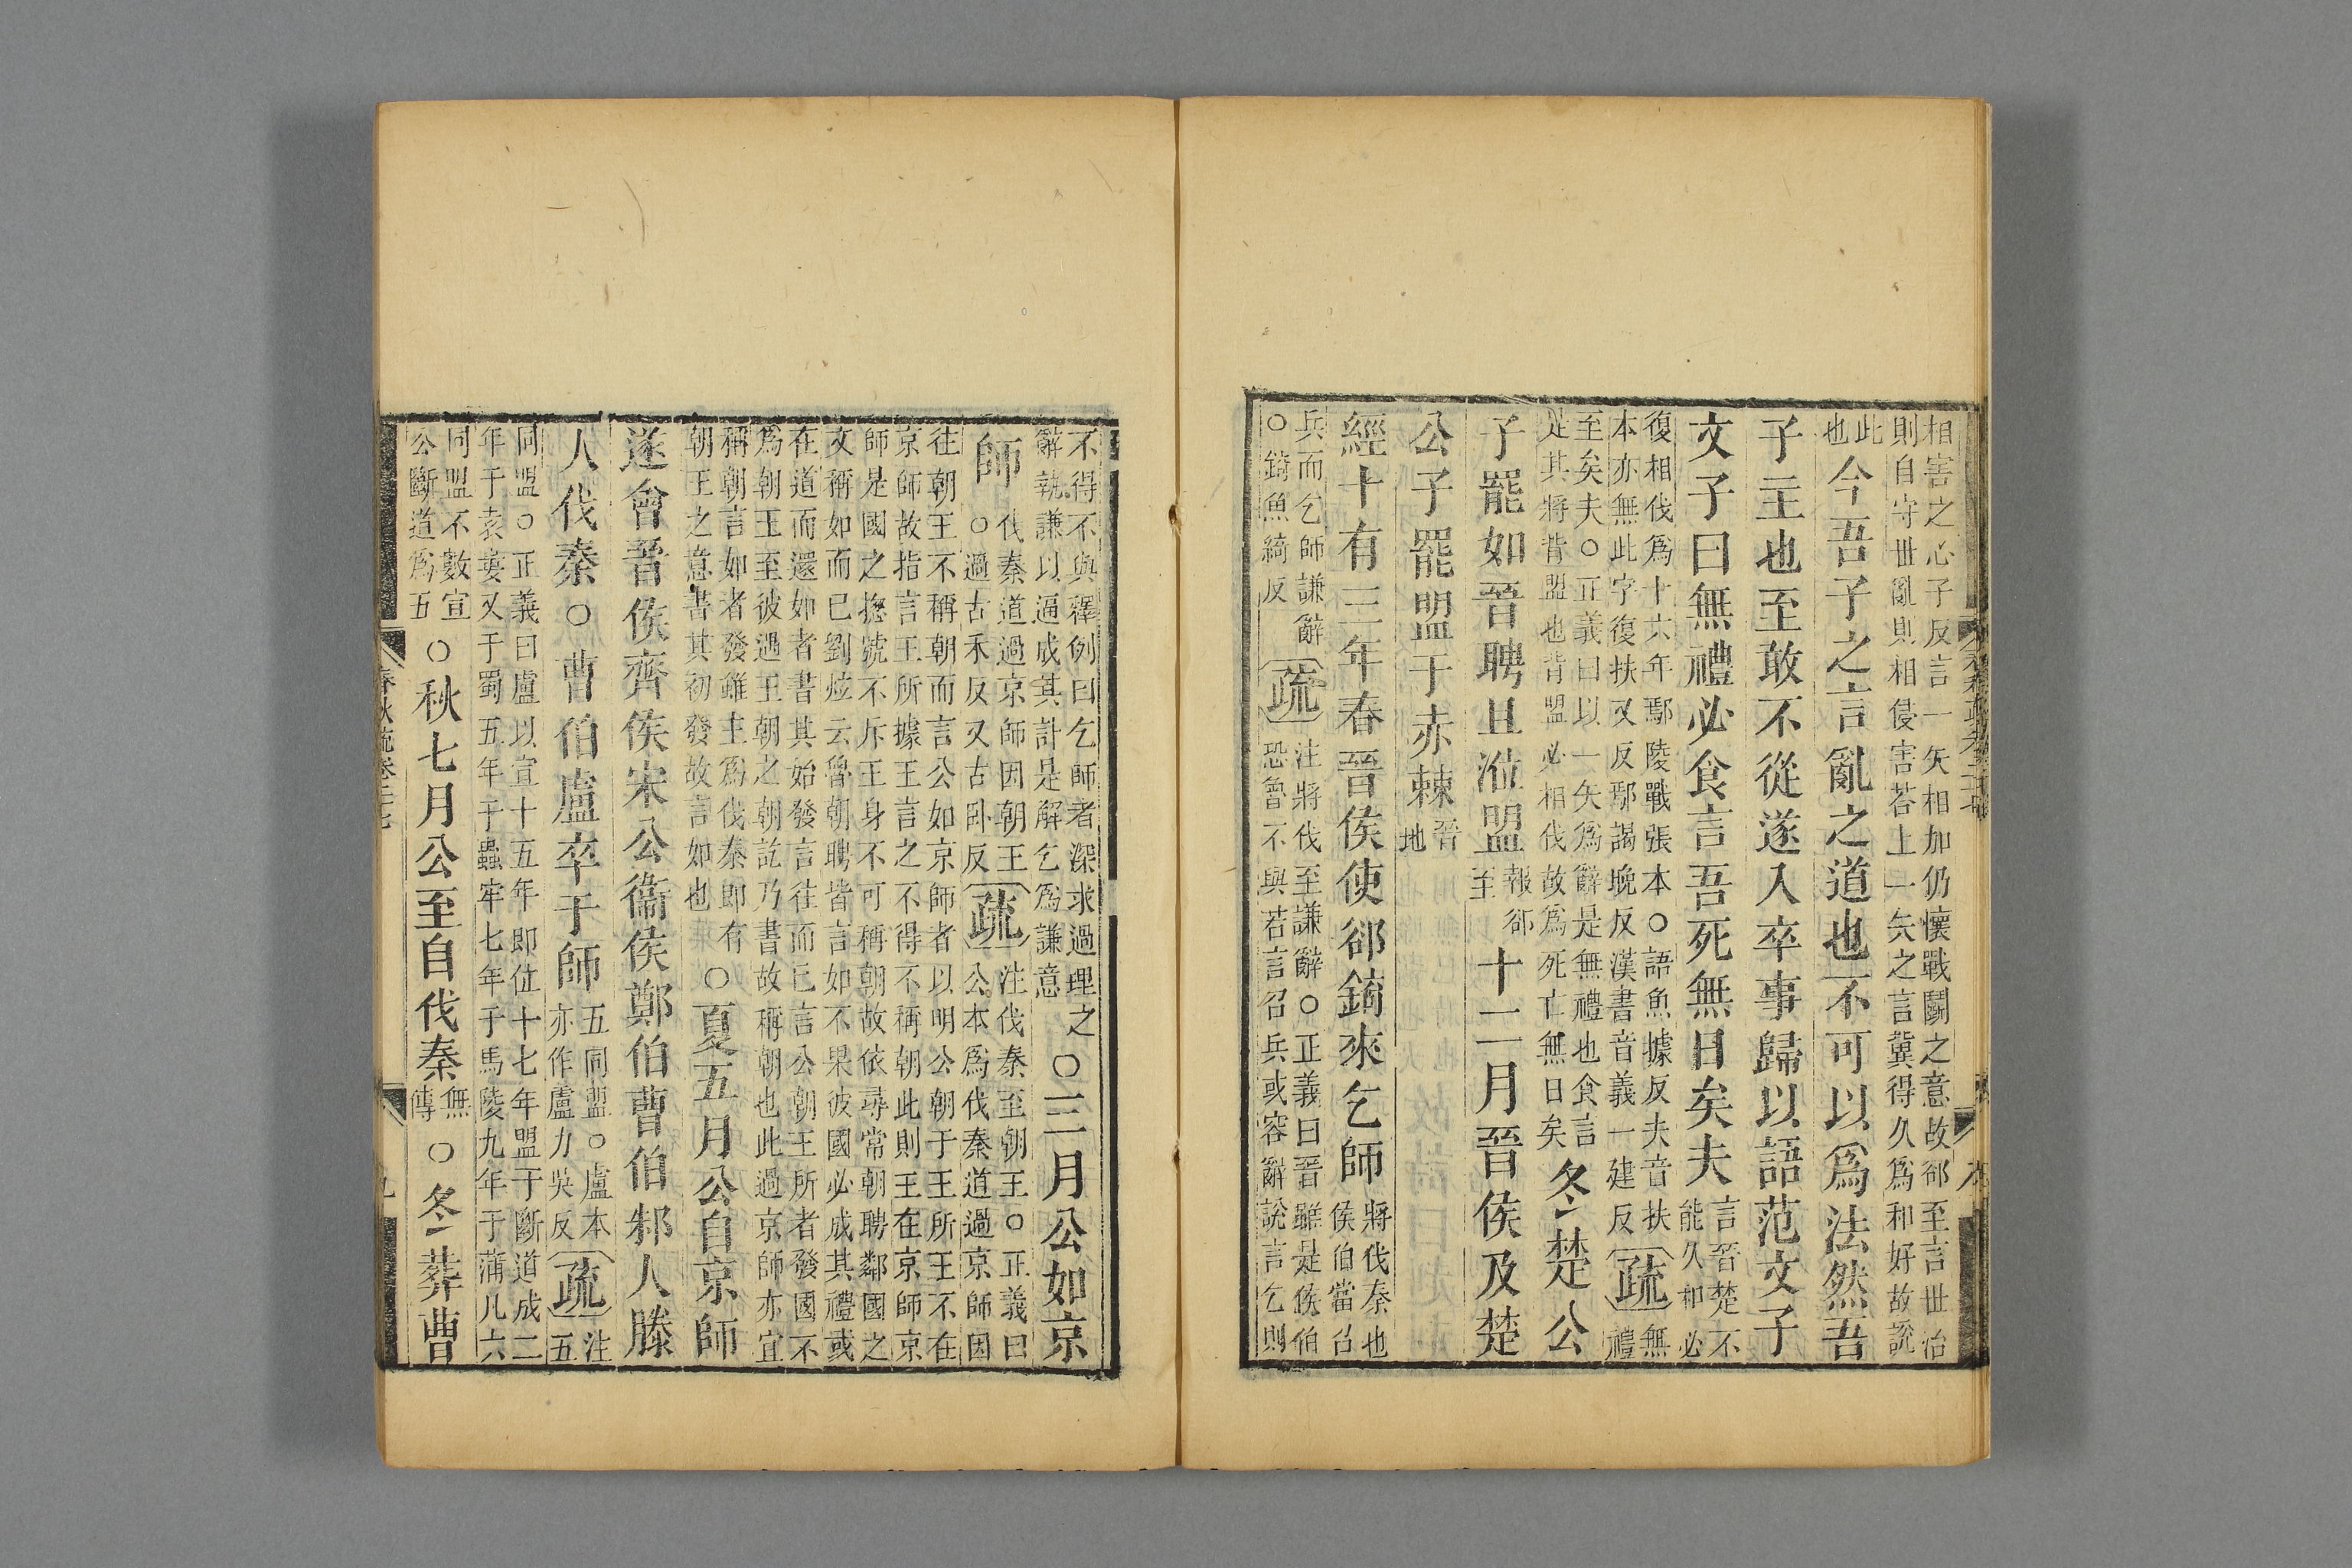 相害之心子反言一矢相加仍懷戰鬬之意故郤至言世治
則自守世亂則相侵害若上一矢之言冀得久爲和好故說
此也今吾子之言亂之道也不可以爲法然吾
子主也至敢不從遂入卒事歸以語范文子
文子曰無禮必食言吾死無日矣夫言晉楚不能久和必
復相伐爲十六年鄢陵戰張本○語魚據反夫音扶
本亦無此字復扶又反鄢謁晚反漢書音義一建反疏無禮
至矣夫○正義曰以一矢爲辭是無禮也食言
是其將背盟也背盟必相伐故爲死亡無日矣冬楚公
子罷如晉聘且涖盟報郤至十二月晉侯及楚
公子罷盟于赤棘晉地
經十有三年春晉侯使郤錡來乞師將伐秦也侯伯當召
兵而乞師謙辭○錡魚綺反疏注將伐至謙辭○正義曰晉雖是侯伯
恐魯不與若言召兵或容辭說言乞則
不得不與釋例曰乞師者深求過理之
辭執謙以逼成其計是解乞爲謙意○三月公如京
師伐秦道過京師因朝王○過古禾反又古卧反疏注伐秦至朝王○正義曰公本爲伐秦道過京師因
往朝王不稱朝而言公如京師者以明公朝于王所王不在
京師故指言王所據王言之不得不稱朝此則王在京師京
師是國之揔號不斥王身不可稱朝故依尋常朝聘鄰國之
文稱如而已劉炫云魯朝聘皆言如不果彼國必成其禮或
在道而還如者書其始發言往而已言公朝王所者發國不
爲朝王至彼遇王朝之朝訖乃書故稱朝也此過京師亦宜
稱朝言如者發雖主爲伐秦即有
朝王之意書其初發故言如也○夏五月公自京師
遂會晉侯齊侯宋公衞侯鄭伯曹伯邾人滕
人伐秦○曹伯盧卒于師五同盟○盧本亦作廬力吳反疏注五
同盟○正義曰盧以宣十五年即位十七年盟于斷道成二
年于袁婁又于蜀五年于蟲牢七年于馬陵九年于蒲凡六
同盟不數宣公斷道爲五○秋七月公至自伐秦無傳○冬葬曹